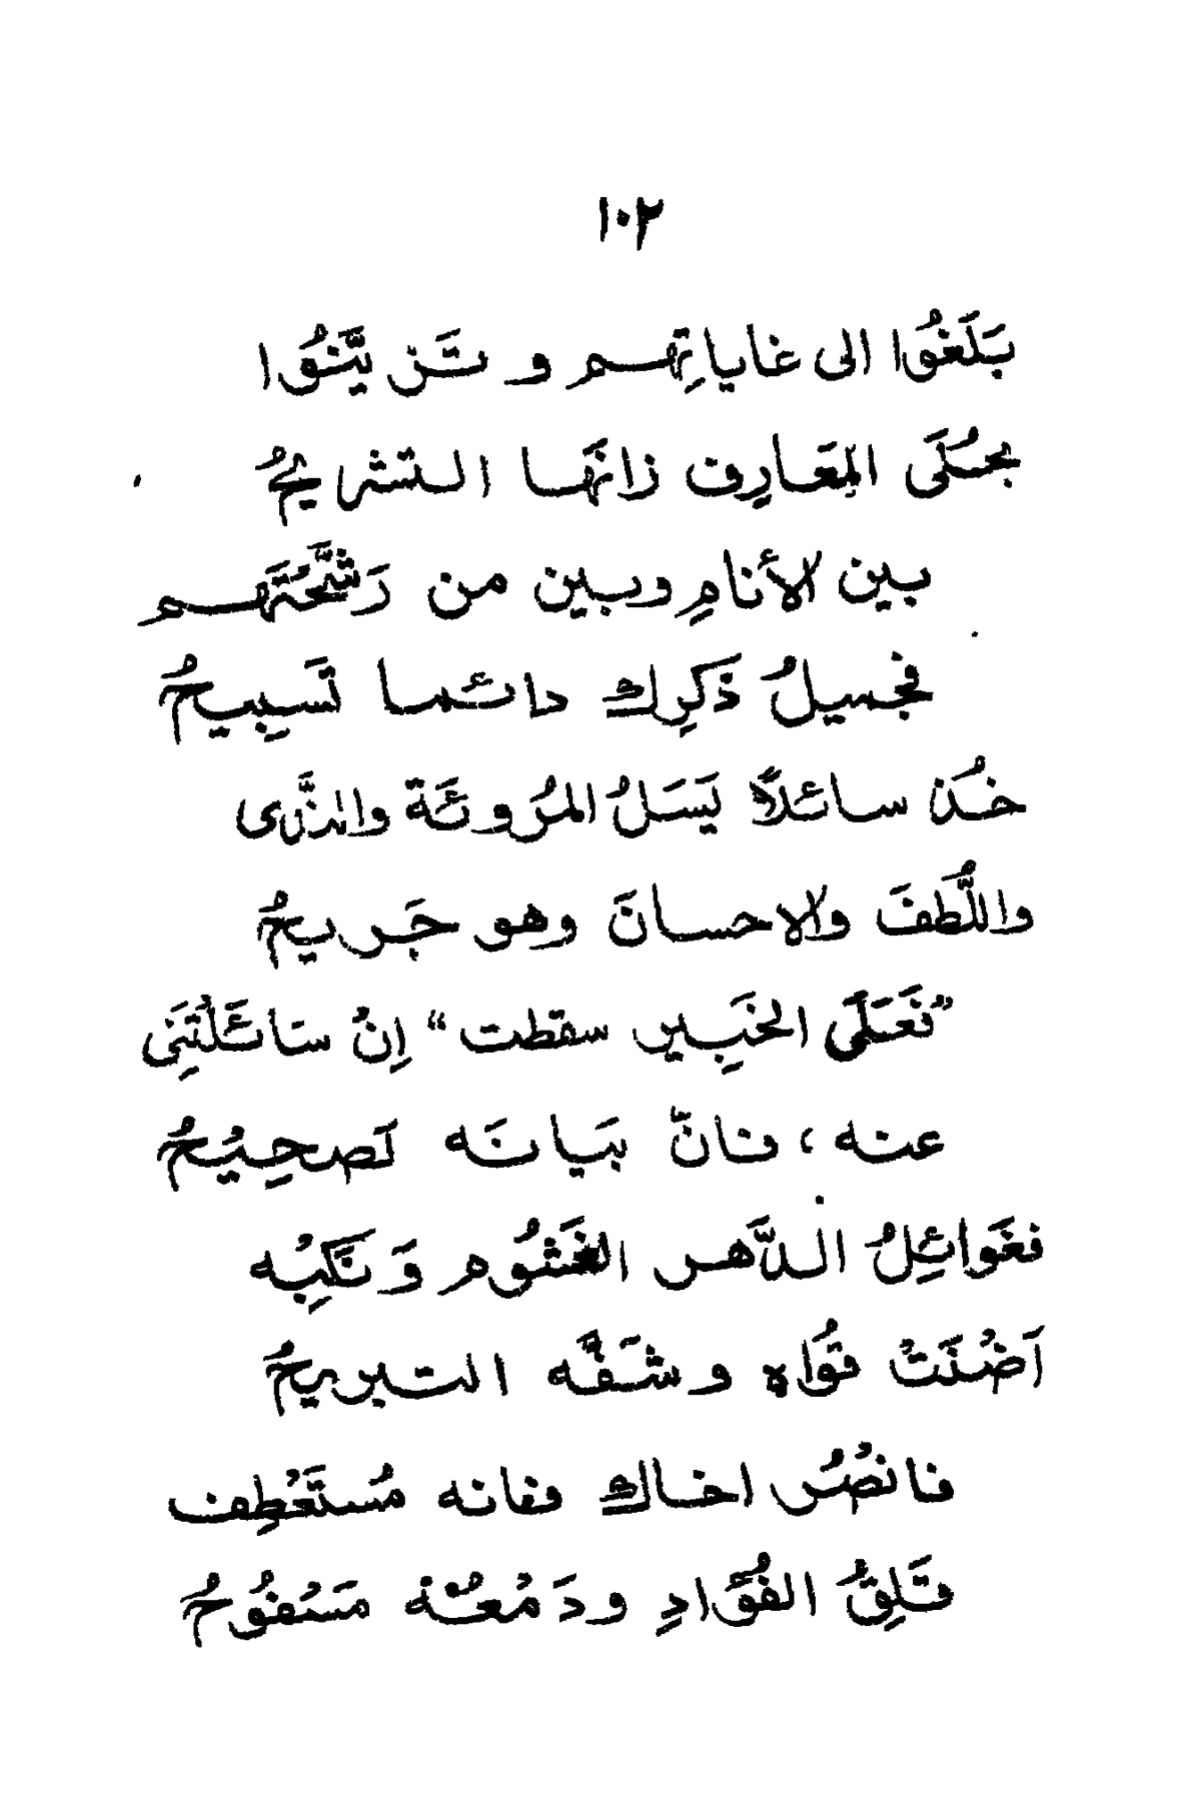 ١٠٢
بَلَغُوا الى غاياتِهم و تَزيَّنُوا
بحُلَى المعَارِف زانَها التشريحُ
بين الأنامِ وبين من رَشَّحْتَهم
فجميلُ ذَكرِك دائما تَسبِيحُ
خُذ سائلاً يَسَلُ المرُوئَة والنَّدى
واللُّطفَ والاحسانَ وهو جَريحُ
"نَعَلَى الخَبِير سقطت" اِنْ سَائَلْتَنِى
عنه ، فانّ بَيانَه تَصحِيْحُ
فغَوائِلُ الدَّهر الغَشُوم وَنَكبِْه
اَضْنَتْ قُوَاه وشَفَّه التبريحُ
فانصُْر اخاك فانه مُستَعْطِف
قَلِقُ الفُؤَادِ ودَمْعُهْ مَسْفُوحُ